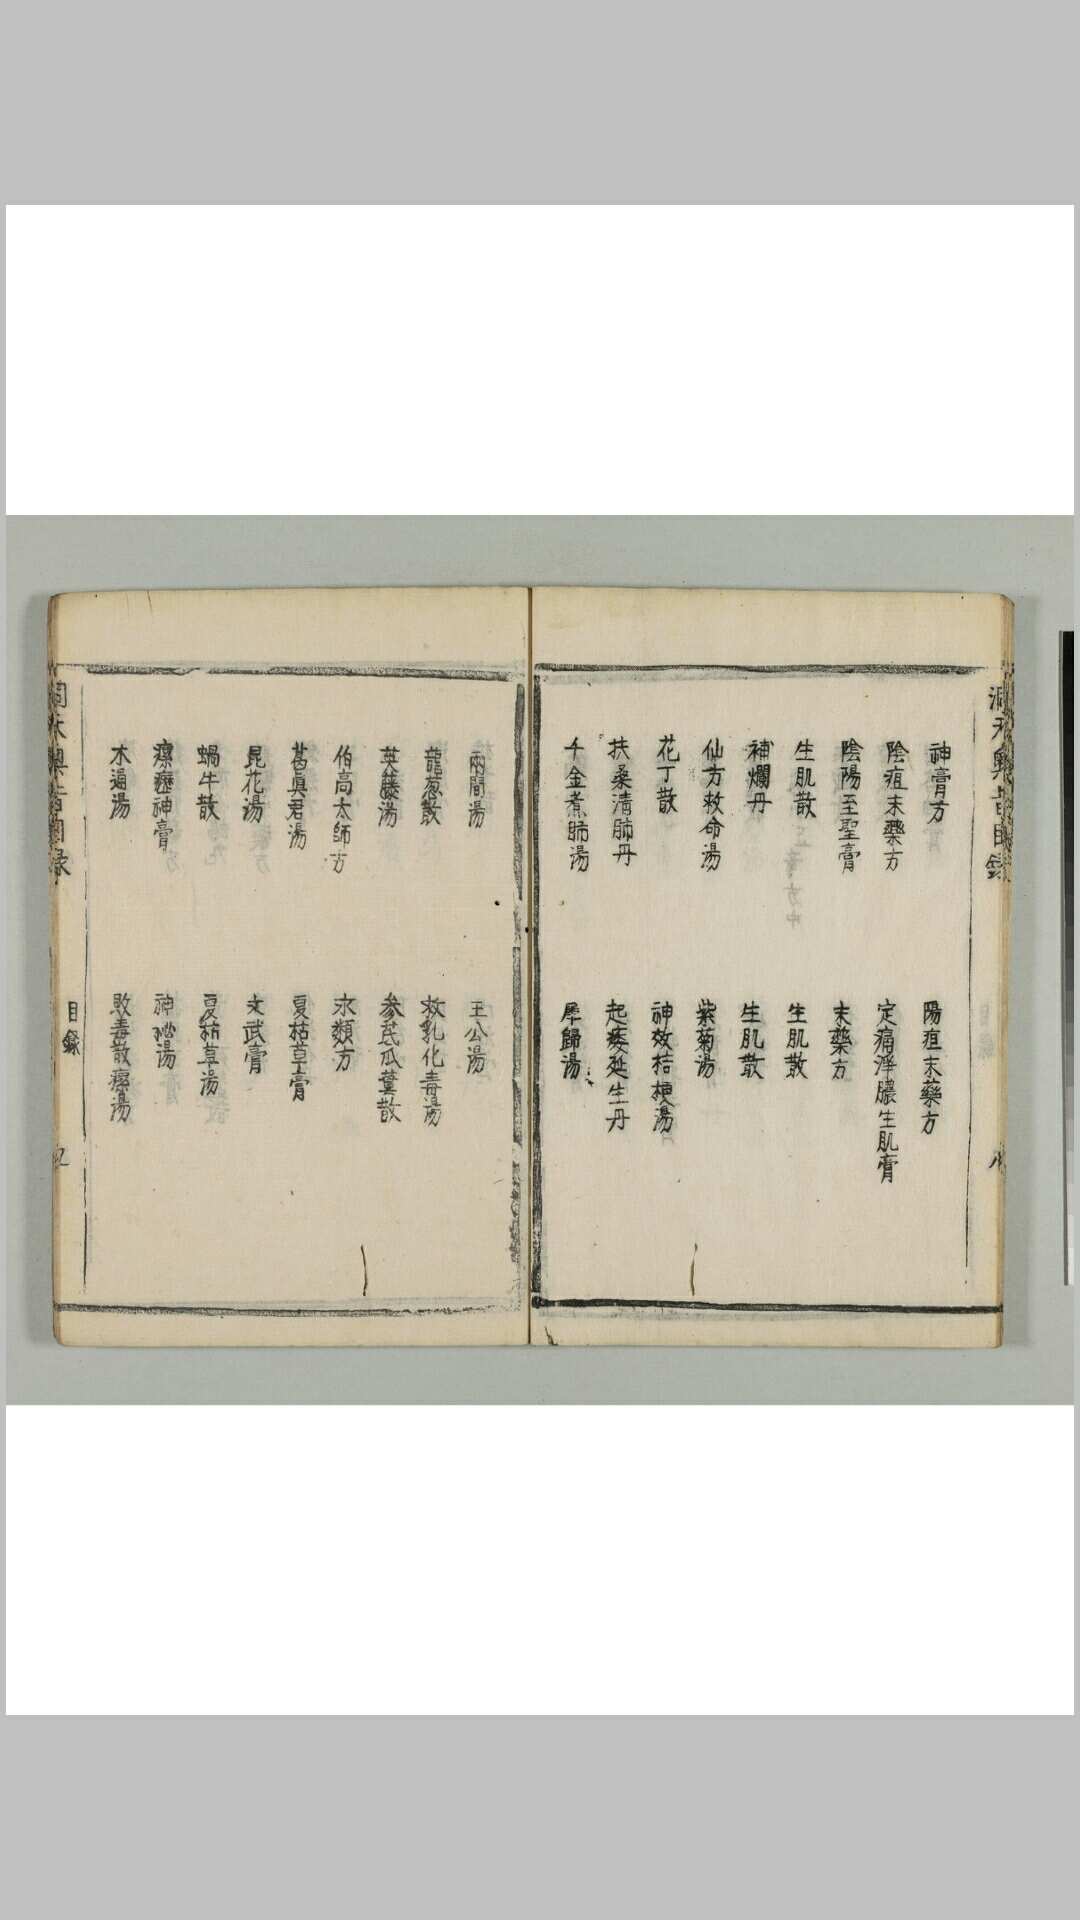 洞天奧旨目錄
神膏方
陽疽末藥方
陰疽末藥方
定痛淨膿生肌膏
陰陽至聖膏
末藥方
生肌散
生肌散
補爛丹
生肌散
仙方救命湯
紫菊湯
花丁散
神效桔梗湯
扶桑清肺丹
起痿延生丹
千金煮肺湯
犀歸湯
兩間湯
王公湯
龍葱散
救乳化毒湯
英藤湯
參芪瓜蔞散
伯高太師方
氷類方
葛眞君湯
夏枯草膏
昆花湯
文武膏
蝸牛散
夏枯草湯
瘰癧神膏
神湯
木通湯
敗毒散瘰湯
洞天奧旨目錄
目錄